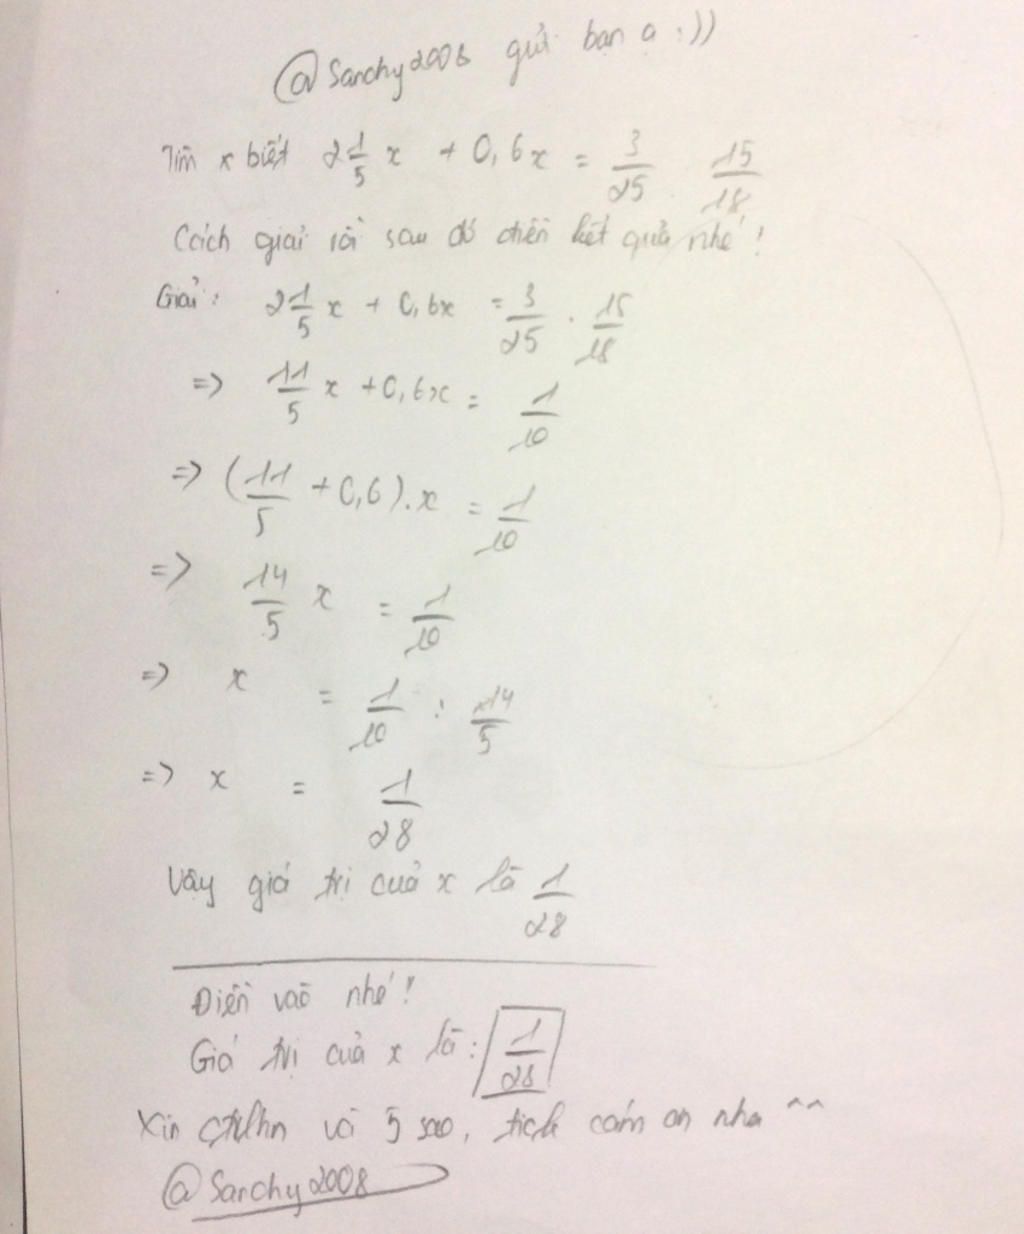 @Sarchy2008 gửi bạn ạ :))
Tìm x biết 2 1/5 x + 0,6x = 3/25 . 15/18
Cách giải rồi sau đó điền kết quả nhé!
Giải: 2 1/5 x + 0,6x = 3/25 . 15/18
=> 11/5 x + 0,6x = 1/10
=> (11/5 + 0,6).x = 1/10
=> 14/5 x = 1/10
=> x = 1/10 : 14/5
=> x = 1/28
Vậy giá trị của x là 1/28
Điền vào nhé!
Giá trị của x là: 1/28
Xin ctlhn và 5 sao, tick cám ơn nha ^^
@Sarchy2008